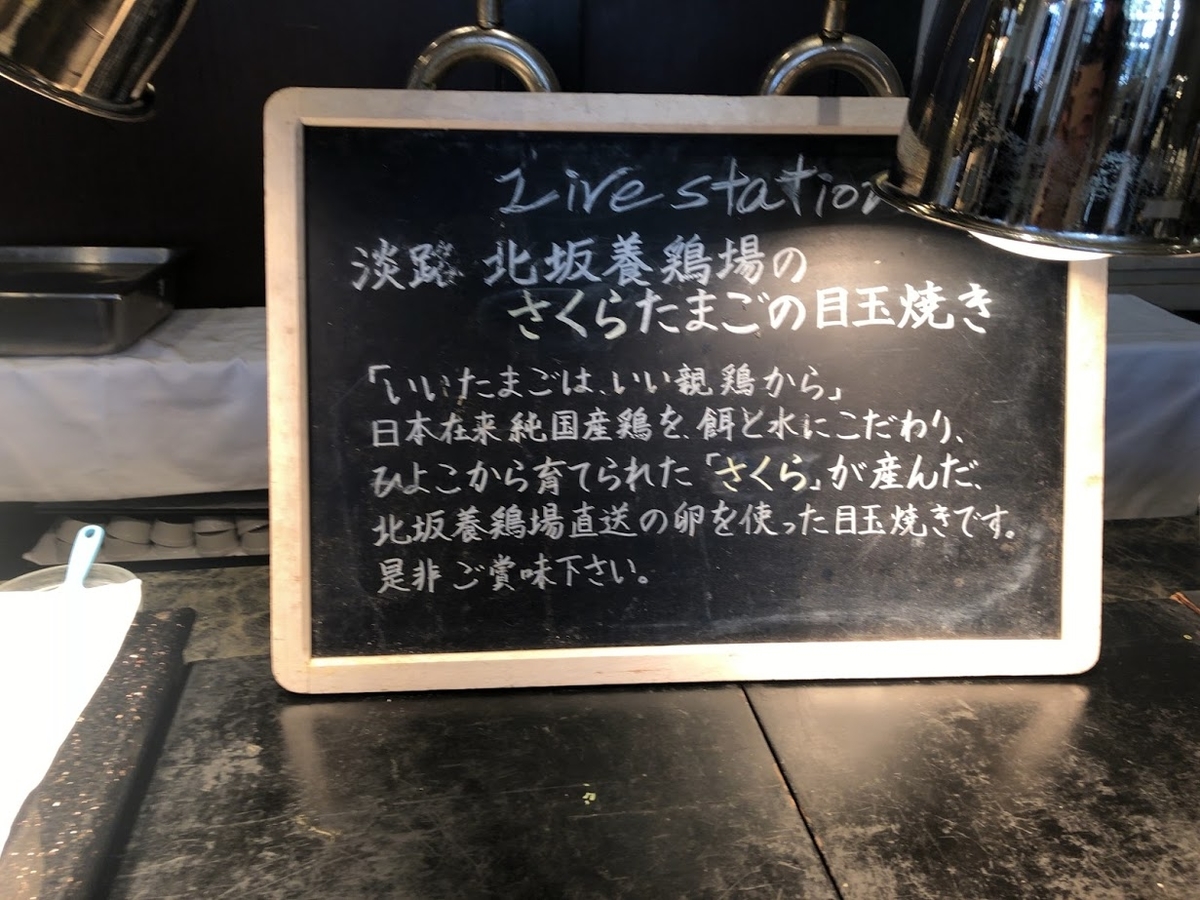 Live station
淡路 北坂養鶏場の
さくらたまごの目玉焼き
「いいたまごは、いい親鶏から」
日本在来純国産鶏を、餌と水にこだわり、
ひよこから育てられた「さくら」が産んだ、
北坂養鶏場直送の卵を使った目玉焼きです。
是非ご賞味下さい。